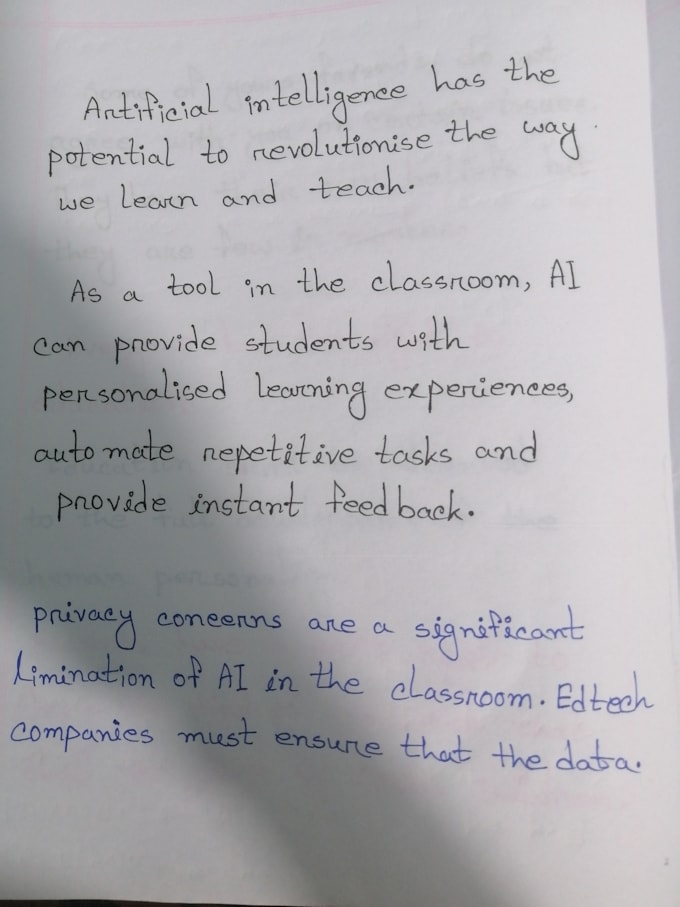 Artificial intelligence has the
potential to revolutionise the way
we learn and teach.
As a tool in the classroom, AI
can provide students with
personalised learning experiences,
automate repetitive tasks and
provide instant feedback.
privacy concerns are a significant
limination of AI in the classroom. Edtech
companies must ensure that the data.